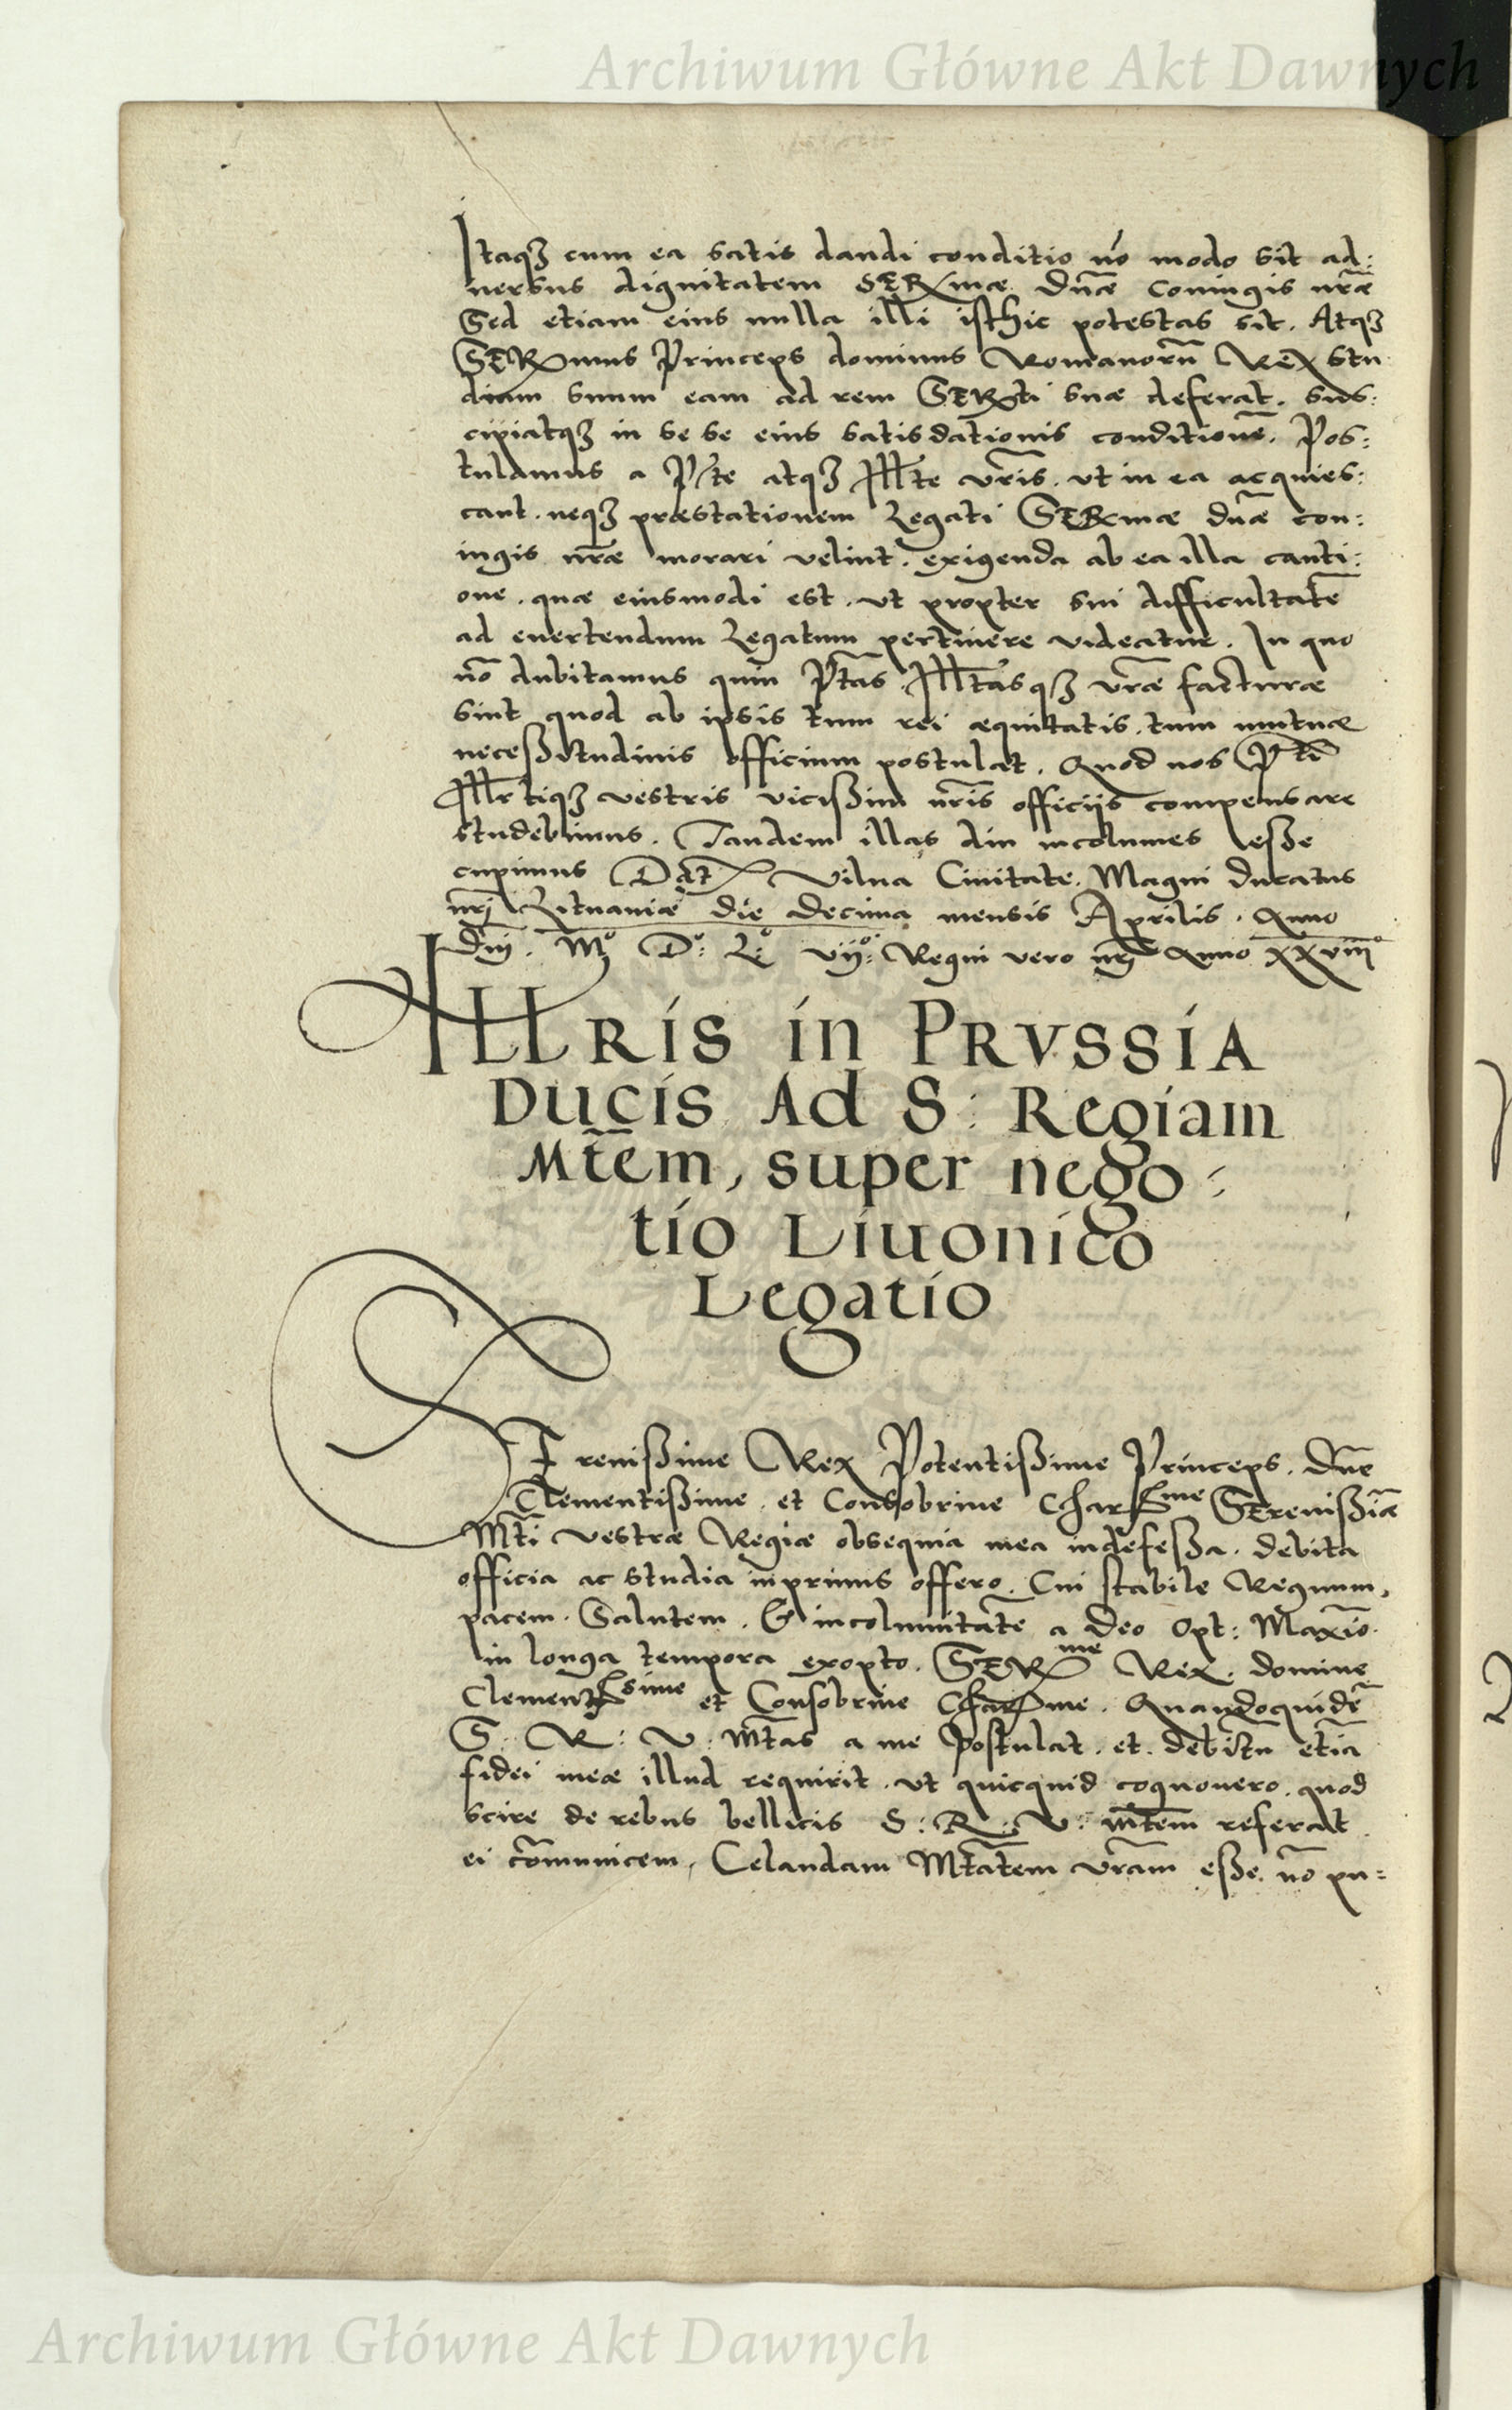 Archiwum Główne Akt Dawnych
Itaqꝫ cum ea satis dandi conditio nō modo sit ad:
uersus dignitatem SERmæ Dnæ Coniugis nr̃æ
Sed etiam eius nulla illi isthic potestas sit. Atqꝫ
SERmus Princeps dominus Romanorū Rex stu
dium suum eam ad rem SERti suæ deferat. sus:
cipiatqꝫ in se se eius satisdationis conditionē. Pos:
tulamus a P̃te atqꝫ Illt̃e vr̃is. vt in ea acquies:
cant. neqꝫ præstationem Legati SERmæ dnæ con:
iugis nr̃æ morari velint. exigenda ab ea illa cauti:
one. quæ eiusmodi est. vt propter sui difficultatē
ad euertendum Legatum pertinere videatur. In quo
nō dubitamus quin P̃tas Illt̃asqꝫ vr̃æ facturæ
sint quod ab ipsis tum rei æquitatis. tum mutuæ
necessitudinis officium postulat. Quod nos P̃ti
Illrtiqꝫ vestris vicissim nr̃is officijs compensare
studebimus. Tandem illas diu incolumes esse
cupimus Dat Vilna Ciuitate. Magni Ducatus
nrj Lituaniæ die decima mensis Aprilis. Anno
Dnj. Mº Dº: Lº vijº: Regni vero nrj Anno xxviijº
ILLRis in PRVSSiA
Ducis Ad S: Regiam
Mt̃em, super nego:
tio Liuonico
Legatio
SErenissime Rex Potentissime Princeps. Dn̄e
Clementissime. et Consobrine Charssme SErenissiæ
Mt̃i vestræ Regiæ obsequia mea indefessa. debita
officia ac studia inprimis offero. Cui stabile Regnum,
pacem. Salutem. & incolumitatē a Deo Opt: Maxīo.
in longa tempora exopto. SERme Rex. domine
Clementssime et Consobrine Charme. Quandoquidē
S: R: V: Mt̃as a me postulat. et. debitū etiā
fidei meæ illud requirit. vt quicquid cognouero. quod
scire de rebus bellicis S: R: V: Mt̃em referat
ei cōmunicem, Celandam Mt̃atem vr̃am esse. nō pu=
Archiwum Główne Akt Dawnych